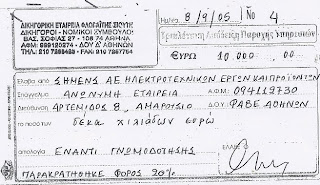 ΔΙΚΗΓΟΡΙΚΗ ΕΤΑΙΡΕΙΑ ΦΛΟΓΑΪΤΗΣ ΣΙΟΥΤΗ
ΔΙΚΗΓΟΡΟΙ - ΝΟΜΙΚΟΙ ΣΥΜΒΟΥΛΟΙ
ΒΑΣ. ΣΟΦΙΑΣ 27 - 106 74 ΑΘΗΝΑ
ΑΦΜ: 999120274 - ΔΟΥ Δ' ΑΘΗΝΩΝ
8/9/05 No 4
Απόδειξη Παροχής Υπηρεσιών
ΕΥΡΩ 10 000 - 00
Έλαβα από ΣΗΜΕΝΣ ΑΕ ΗΛΕΚΤΡΟΤΕΧΝΙΚΩΝ ΕΡΓΩΝ ΚΑΙ ΠΡΟΪΟΝΤΩΝ
ΑΝΩΝΥΜΗ ΕΤΑΙΡΕΙΑ Α.Φ.Μ.: 094119730
Διεύθυνση ΑΡΤΕΜΙΔΟΣ 8, ΑΜΑΡΟΥΣΙΟ ΔΟΥ ΦΑΒΕ ΑΘΗΝΩΝ
το ποσό των δέκα χιλιάδων ευρώ
αιτιολογία ΕΝΑΝΤΙ ΓΝΩΜΟΔΟΤΗΣΗΣ
ΠΑΡΑΚΡΑΤΗΘΗΚΕ ΦΟΡΟΣ 20%